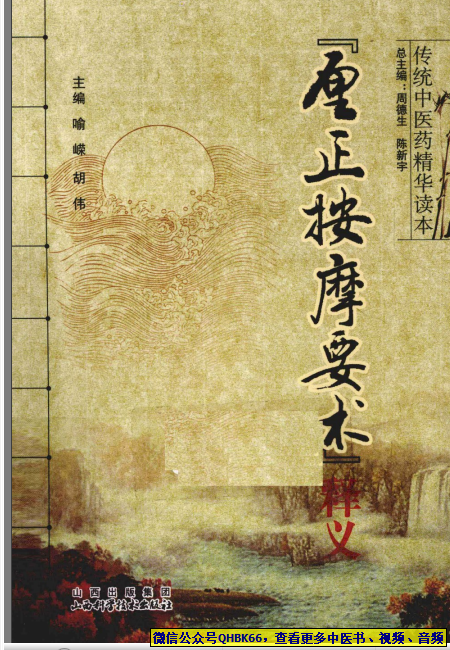 传统中医药精华读本
总主编：周德生 陈新宇
『厘正按摩要术』
释义
主编 喻嵘 胡伟
山西出版集团
山西科学技术出版社
微信公众号QHBK66，查看更多中医书、视频、音频